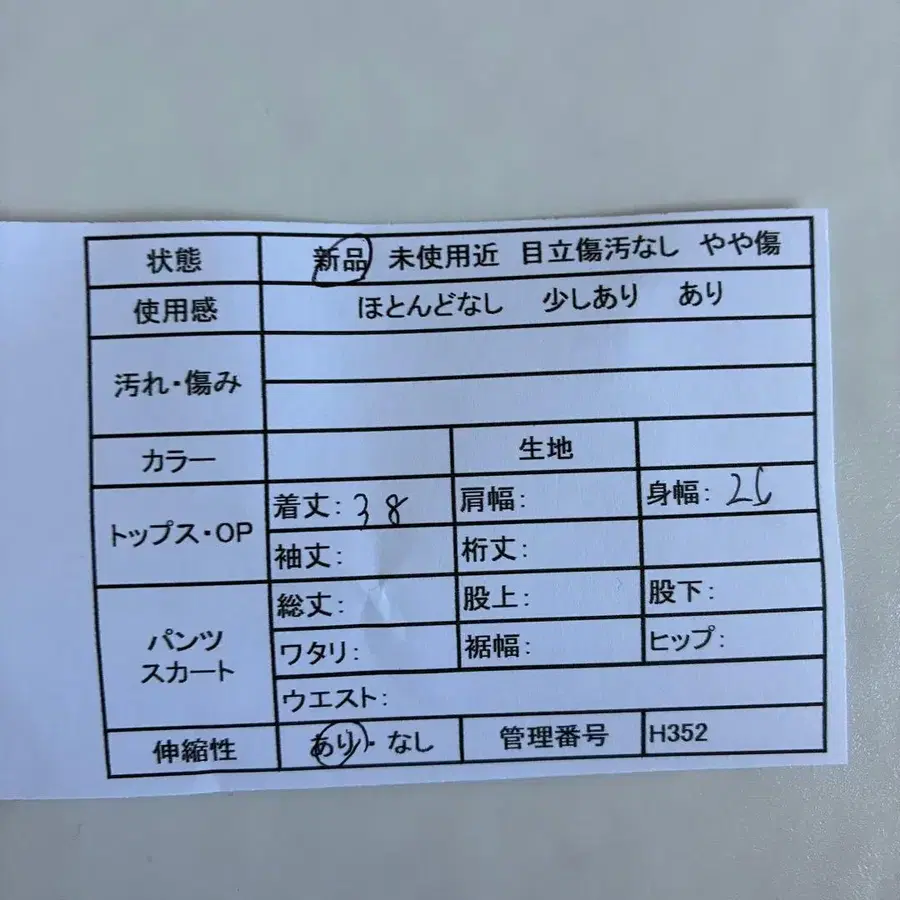 状態 新品 未使用近 目立傷汚なし やや傷
使用感 ほとんどなし 少しあり あり
汚れ・傷み
カラー 生地
トップス・OP
着丈: 38 肩幅: 身幅:
袖丈: 裄丈:
パンツ
スカート
総丈: 股上: 股下:
ワタリ: 裾幅: ヒップ:
ウエスト:
伸縮性 あり・なし 管理番号 H352